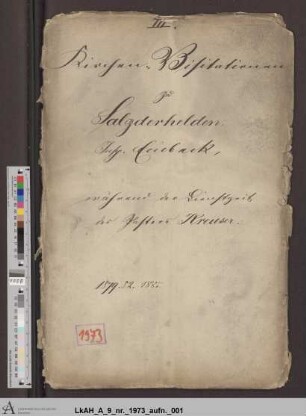 III.
Kirchen-Visitationen
zu
Salzderhelden
Insp. Einbeck,
während der Dienstzeit
des Pastors
1973
LkAH_A_9_nr._1973_aufn._001